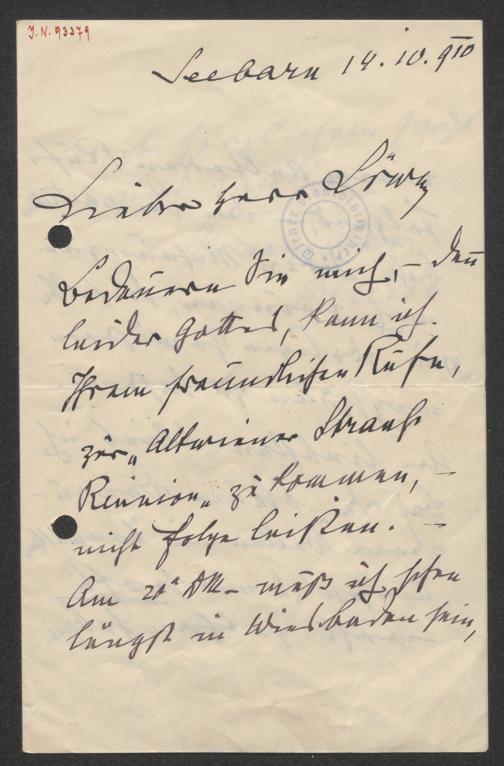 J.N. 93379
Seebarn 14.10.910
Lieber Herr Löwy
Bedauern Sie mich, – denn
leider Gottes, kann ich
Ihrem freundlichen Rufe,
zur „Altwiener Strauß
Reunion„ zu kommen, –
nicht Folge leisten. –
Am 20t – muß ich schon
längst in Wiesbaden sein,